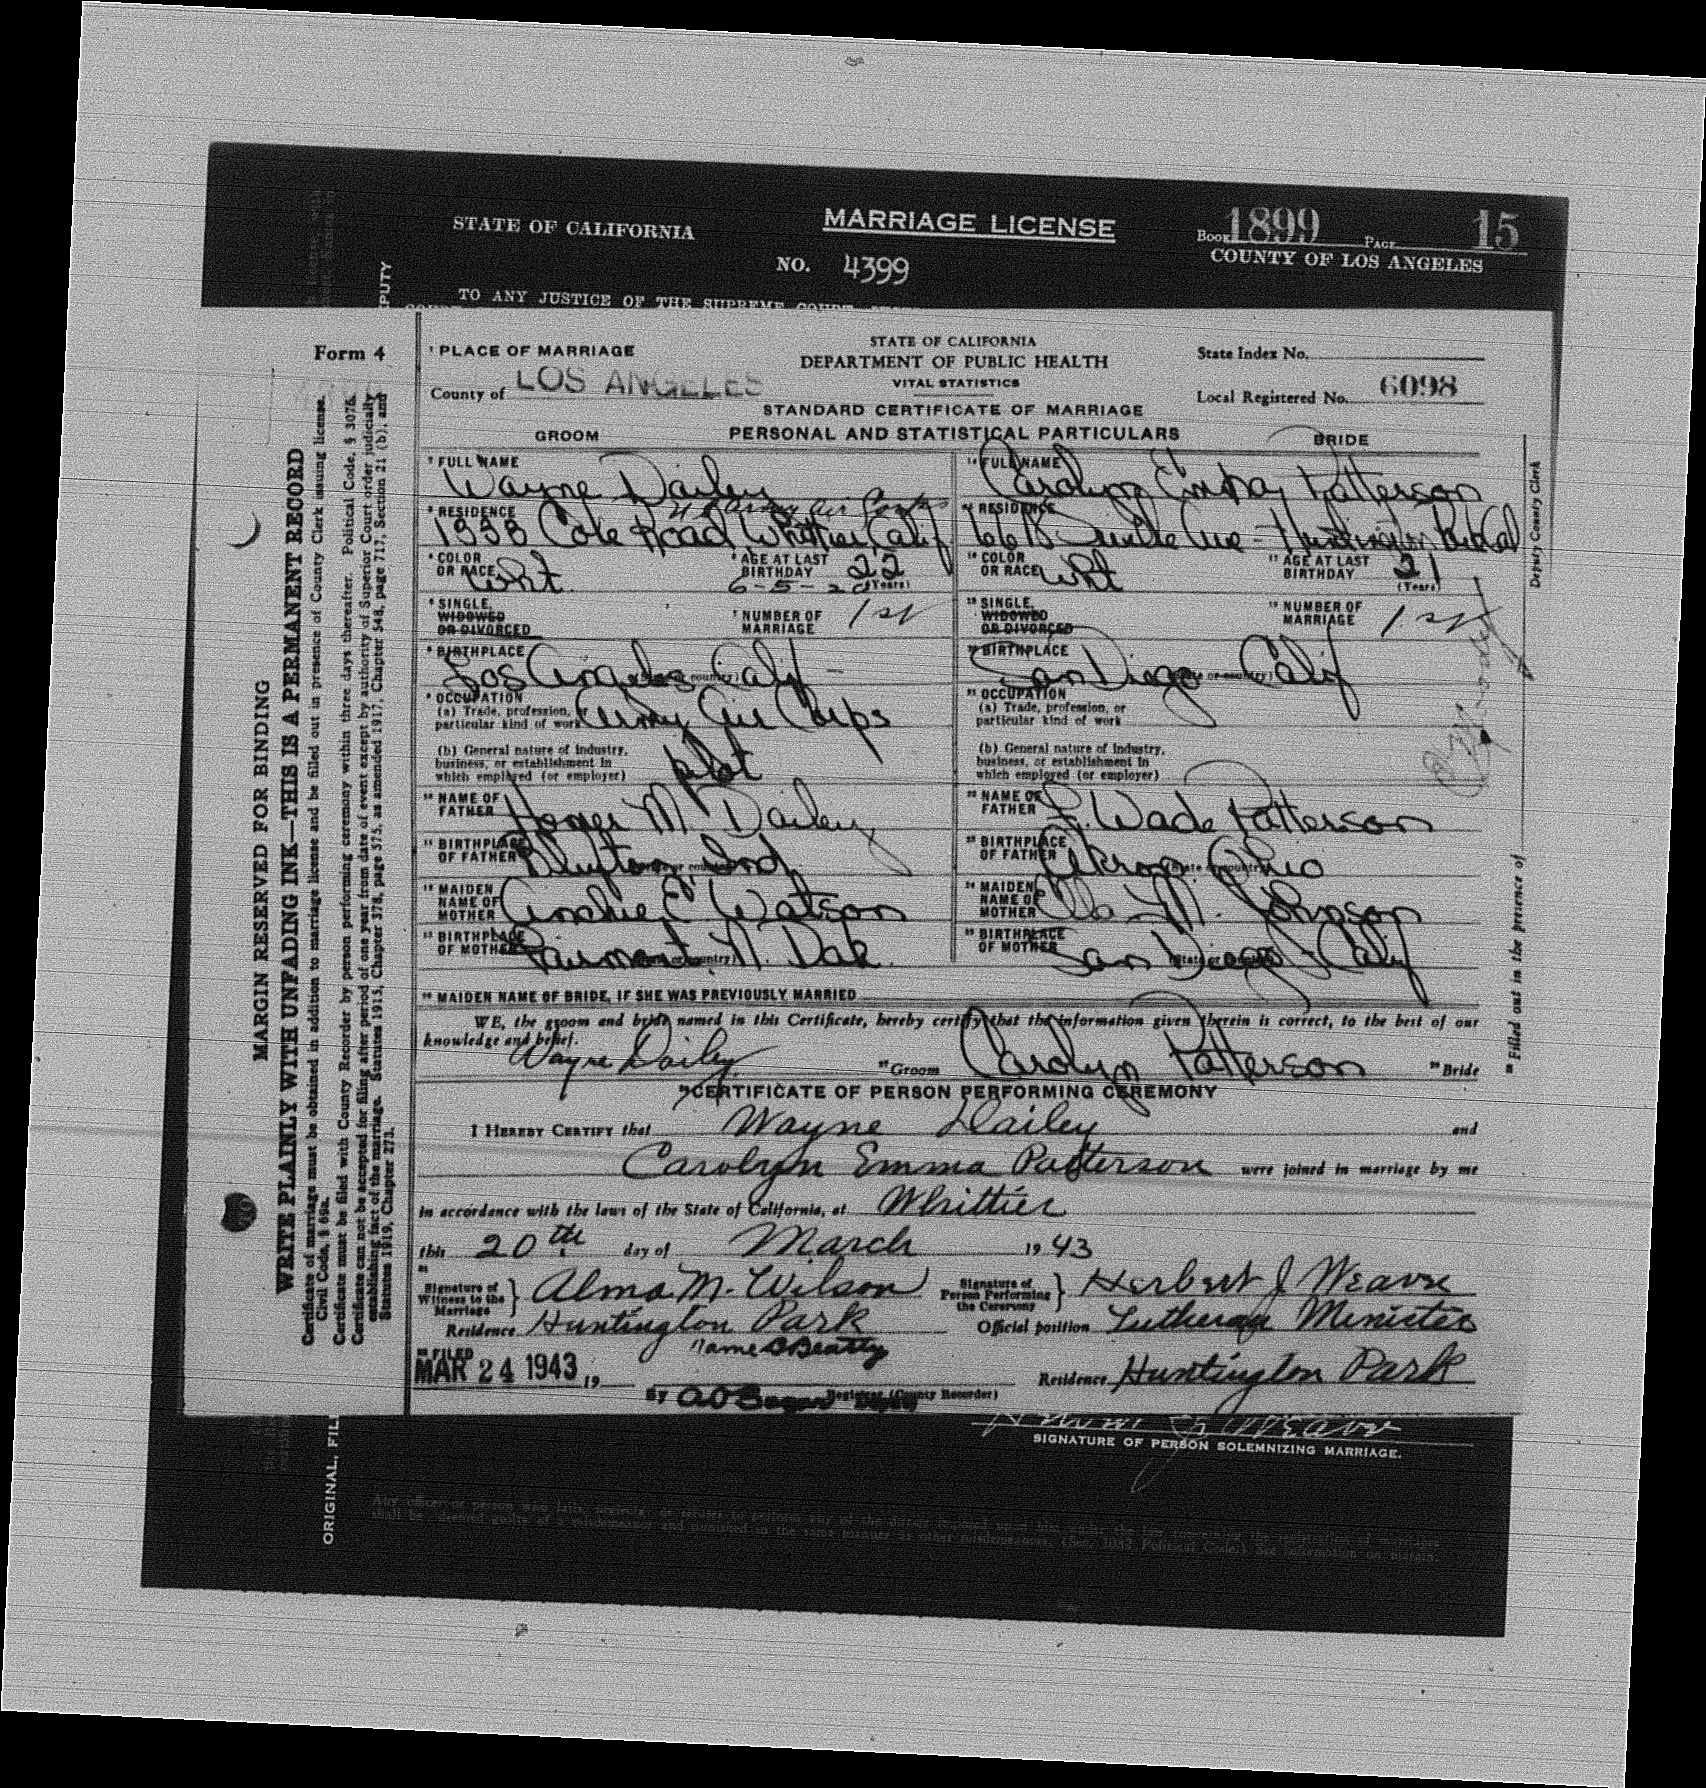 STATE OF CALIFORNIA
MARRIAGE LICENSE
Book 1899 PAGE 15
COUNTY OF LOS ANGELES
NO. 4399
TO ANY JUSTICE OF THE SUPREME COURT
Form 4
¹ PLACE OF MARRIAGE
County of LOS ANGELES
STATE OF CALIFORNIA
DEPARTMENT OF PUBLIC HEALTH
VITAL STATISTICS
STANDARD CERTIFICATE OF MARRIAGE
State Index No.
Local Registered No. 6098
GROOM PERSONAL AND STATISTICAL PARTICULARS BRIDE
FULL NAME Wayne Dailey
FULL NAME Carolyn Emma Patterson
U S Army Air Corps
RESIDENCE 1338 Cole Road Whittier, Calif
RESIDENCE Ave - Huntington Pk Cal
COLOR OR RACE Wht. AGE AT LAST BIRTHDAY 22 (Years)
6-5-20
COLOR OR RACE Wht AGE AT LAST BIRTHDAY 21 (Years)
SINGLE, WIDOWED OR DIVORCED NUMBER OF MARRIAGE 1st
SINGLE, WIDOWED OR DIVORCED NUMBER OF MARRIAGE 1st
BIRTHPLACE Los Angeles Calif
BIRTHPLACE San Diego Calif
OCCUPATION
(a) Trade, profession, or particular kind of work Army Air Corps
OCCUPATION
(a) Trade, profession, or particular kind of work
(b) General nature of industry, business, or establishment in which employed (or employer) pilot
(b) General nature of industry, business, or establishment in which employed (or employer)
NAME OF FATHER Homer M. Dailey
NAME OF FATHER F. Wade Patterson
BIRTHPLACE OF FATHER Bluffton, Ind
BIRTHPLACE OF FATHER Akron, Ohio
MAIDEN NAME OF MOTHER E. Watson
MAIDEN NAME OF MOTHER Ella M. Johnson
BIRTHPLACE OF MOTHER Fairmont, N. Dak.
BIRTHPLACE OF MOTHER San Diego, Calif
MAIDEN NAME OF BRIDE, IF SHE WAS PREVIOUSLY MARRIED
WE, the groom and bride named in this Certificate, hereby certify that the information given therein is correct, to the best of our
knowledge and belief.
Wayne Dailey Groom Carolyn Patterson Bride
CERTIFICATE OF PERSON PERFORMING CEREMONY
I HEREBY CERTIFY that Wayne Dailey and
Carolyn Emma Patterson were joined in marriage by me
in accordance with the laws of the State of California, at Whittier
this 20th day of March 1943
Signature of Witness to the Marriage } Alma M. Wilson
Signature of Person Performing the Ceremony } Herbert J Weaver
Residence Huntington Park
Official position Lutheran Minister
FILED
MAR 24 1943, 19
Mame B Beatty
Registrar (County Recorder)
Residence Huntington Park
By
SIGNATURE OF PERSON SOLEMNIZING MARRIAGE.
MARGIN RESERVED FOR BINDING
WRITE PLAINLY WITH UNFADING INK—THIS IS A PERMANENT RECORD
Certificate of marriage must be obtained in addition to marriage license and be filled out in presence of County Clerk issuing license.
Civil Code, § 69a.
Certificate must be filed with County Recorder by person performing ceremony within three days thereafter. Political Code, § 3076.
Certificate can not be accepted for filing after period of one year from date of event except by authority of Superior Court order judicially
establishing fact of the marriage. Statutes 1915, Chapter 378, page 575, as amended 1917, Chapter 548, page 717, Section 21 (b), and
Statutes 1919, Chapter 273.
Filled out in the presence of
Deputy County Clerk
ORIGINAL, FILE